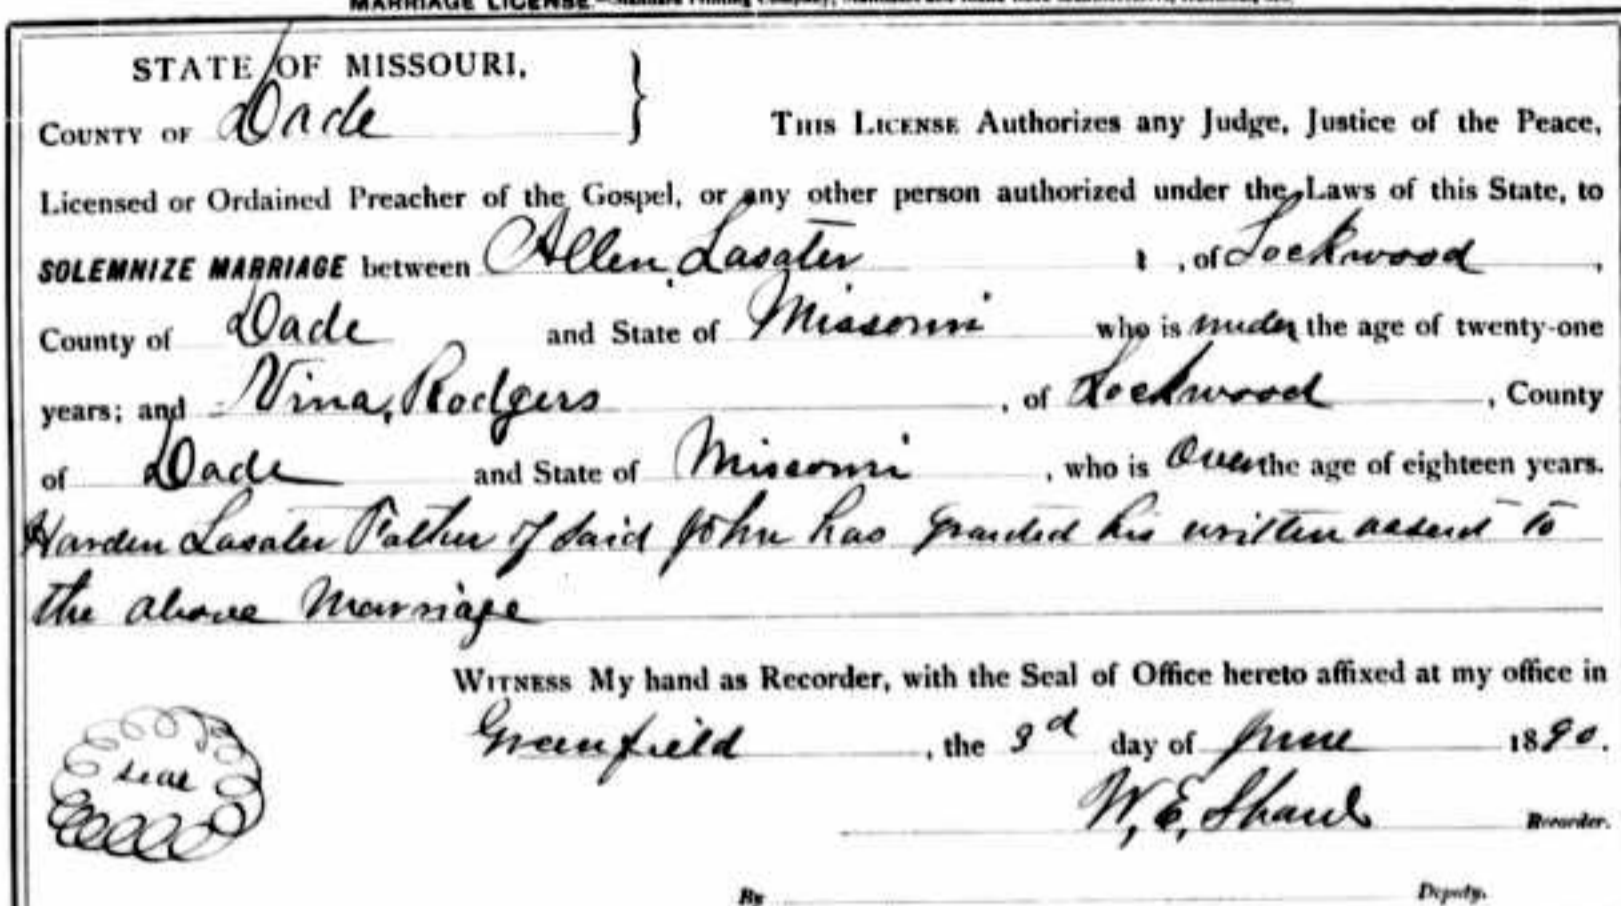 MARRIAGE LICENSE.
STATE OF MISSOURI,
COUNTY OF Dade
THIS LICENSE Authorizes any Judge, Justice of the Peace,
Licensed or Ordained Preacher of the Gospel, or any other person authorized under the Laws of this State, to
SOLEMNIZE MARRIAGE between Allen Lasater , of Lockwood ,
County of Dade and State of Missouri who is under the age of twenty-one
years; and Vina, Rodgers , of Lockwood , County
of Dade and State of Missouri , who is Over the age of eighteen years.
Harden Lasater Father of said John has granted his written assent to
the above Marriage
WITNESS My hand as Recorder, with the Seal of Office hereto affixed at my office in
Greenfield , the 3d day of June 1890.
seal
W. E. Shaul Recorder.
By Deputy.